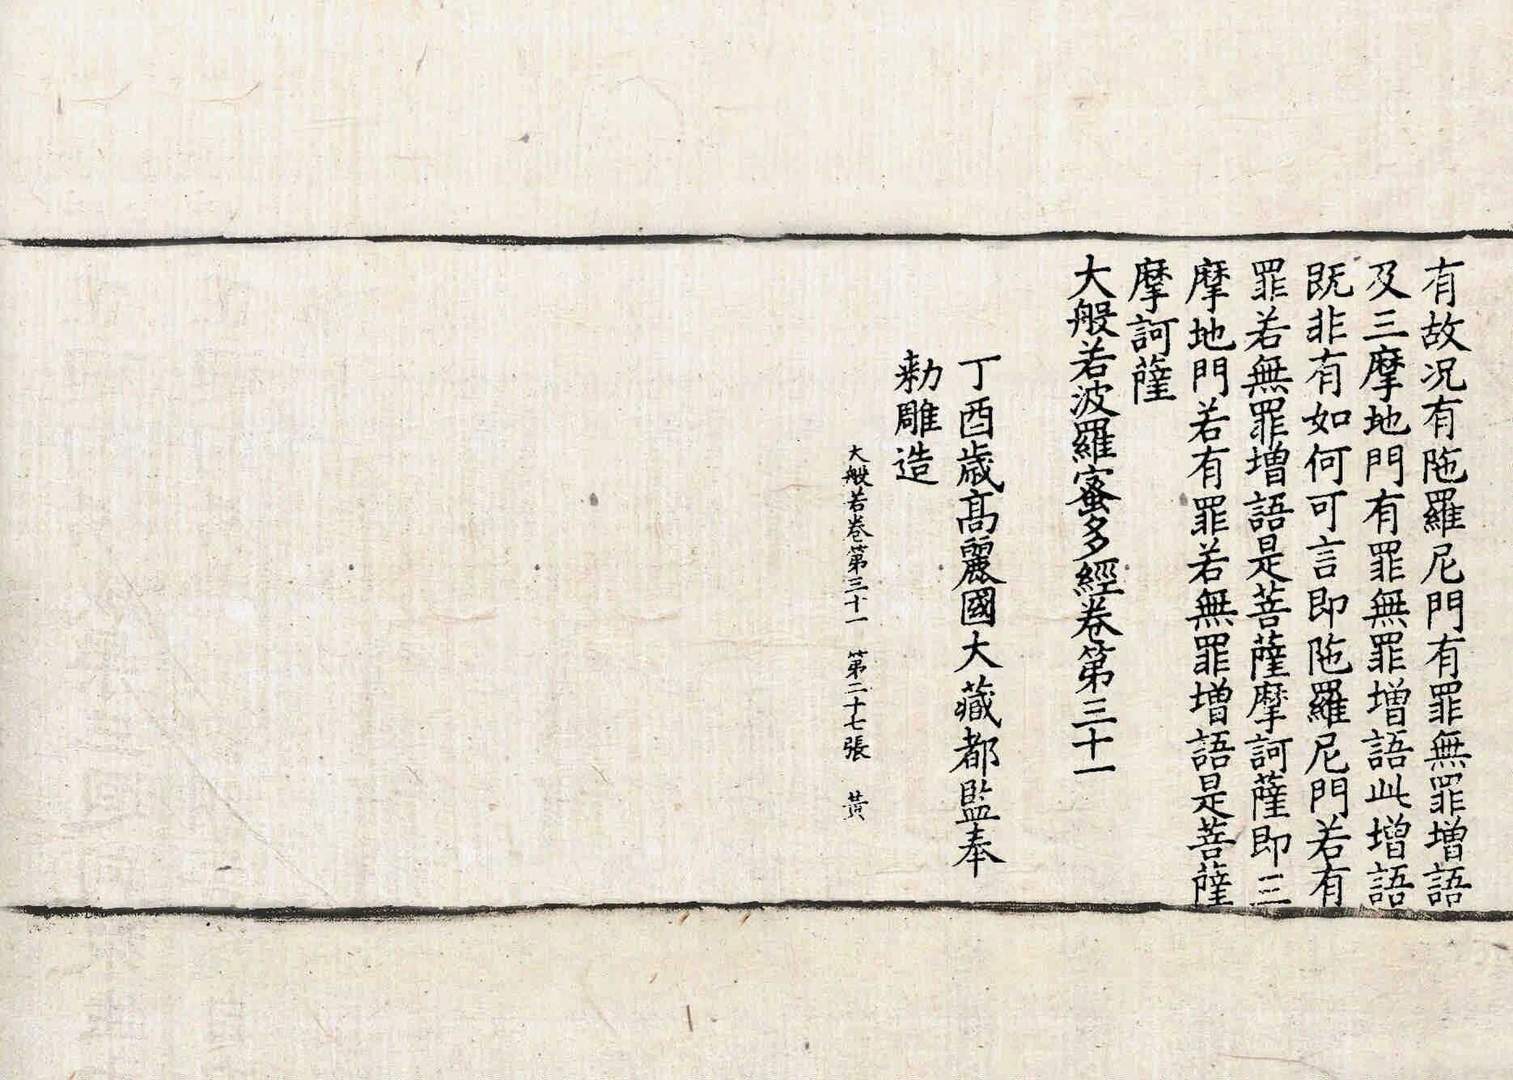 有故况有陁羅尼門有罪無罪增語
及三摩地門有罪無罪增語此增語
既非有如何可言即陁羅尼門若有
罪若無罪增語是菩薩摩訶薩即三
摩地門若有罪若無罪增語是菩薩
摩訶薩
大般若波羅蜜多經卷第三十一
丁酉歲高麗國大藏都監奉
勅雕造
大般若卷第三十一 第二十七張 黃